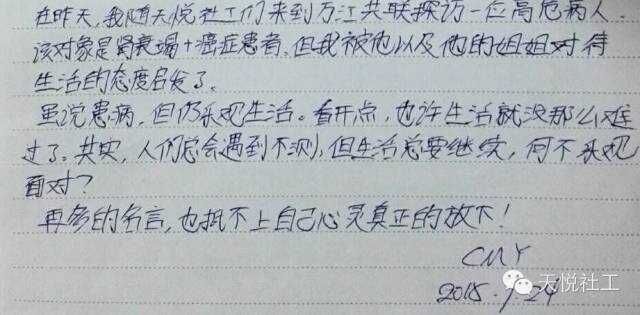 在昨天，我随天悦社工们来到万江共联探访一位高危病人．
该对象是肾衰竭+癌症患者．但我被他以及他的姐姐对待
生活的态度启发了．
虽说患病，但仍乐观生活。看开点，也许生活就没那么难
过了。其实，人们总会遇到不测，但生活总要继续，何不乐观
面对？
再多的名言，也抵不上自己心灵真正的放下！
CMY
2015．24
天悦社工